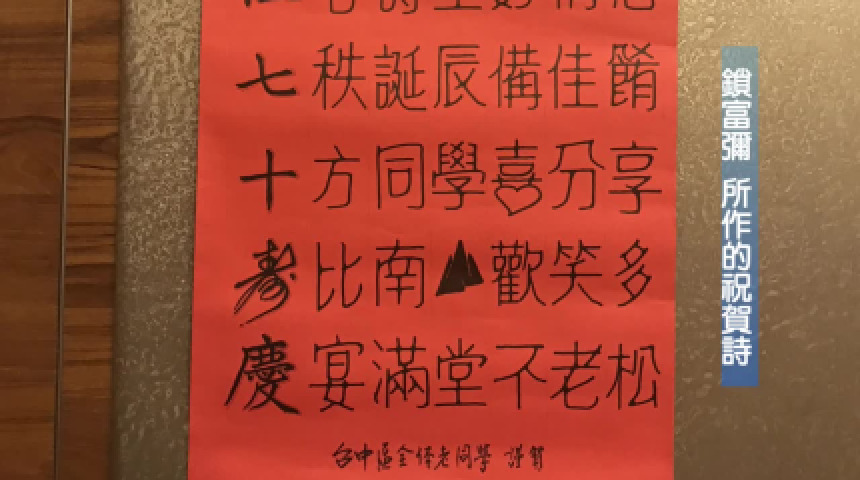 七秩誕辰備佳餚
十方同學喜分享
壽比南 歡笑多
慶宴滿堂不老松
台中區全体老同學 謹賀
鎖富彌 所作的祝賀詩